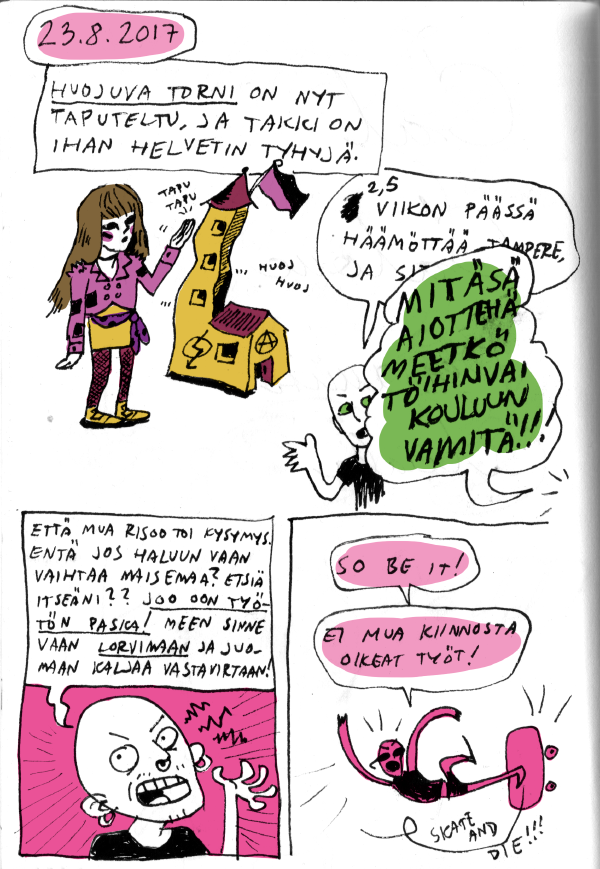 23.8.2017
HUOJUVA TORNI ON NYT
TAPUTELTU, JA TAKKI ON
IHAN HELVETIN TYHJÄ.
TAPU
TAPU
HUOJ
HUOJ
2,5
VIIKON PÄÄSSÄ
HÄÄMÖTTÄÄ TAMPERE,
JA
MITÄSÄ
AIOTTEHÄ
MEETKÖ
TÖIHINVAI
KOULUUN
VAMITÄ!!!
ETTÄ MUA RISOO TOI KYSYMYS.
ENTÄ JOS HALUUN VAAN
VAIHTAA MAISEMAA? ETSIÄ
ITSEÄNI?? JOO OON TYÖ-
TÖN PASKA! MEEN SINNE
VAAN LORVIMAAN JA JUO-
MAAN KALJAA VASTAVIRTAAN!
SO BE IT!
EI MUA KIINNOSTA
OIKEAT TYÖT!
SKATE
AND
DIE!!!